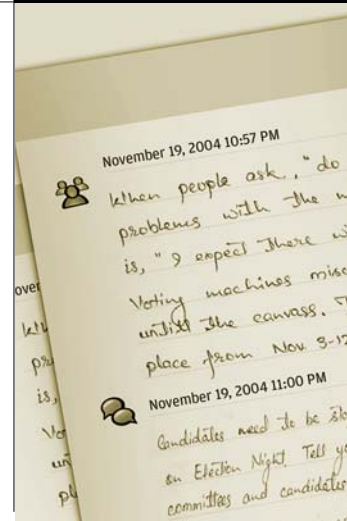 November 19, 2004 10:57 PM
When people ask, "do
problems with the
is, "I expect there
Voting machines
untill the canvass.
place from Nov 3-12
November 19, 2004 11:00 PM
Candidates need to be
on Election Night. Tell
committees and candidates